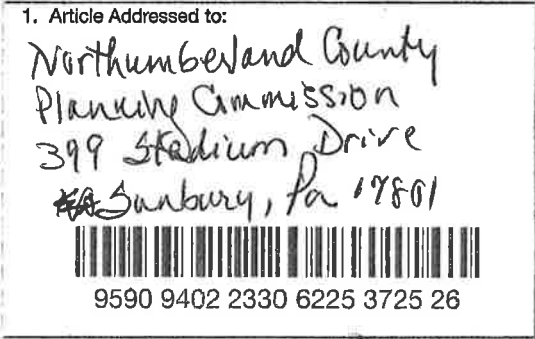 1. Article Addressed to:
Northumberland County
Planning Commission
399 Stadium Drive
Sunbury, Pa 17801
9590 9402 2330 6225 3725 26